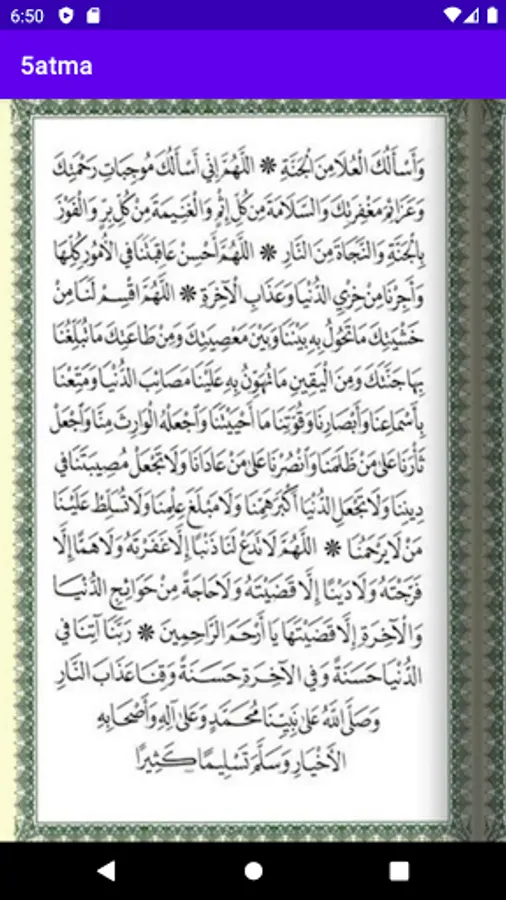 6:50
5atma
وَأَسْأَلُكَ الْعُلَا مِنَ الْجَنَّةِ ❋ اللَّهُمَّ إِنِّي أَسْأَلُكَ مُوجِبَاتِ رَحْمَتِكَ
وَعَزَائِمَ مَغْفِرَتِكَ وَالسَّلَامَةَ مِنْ كُلِّ إِثْمٍ وَالْغَنِيمَةَ مِنْ كُلِّ بِرٍّ وَالْفَوْزَ
بِالْجَنَّةِ وَالنَّجَاةَ مِنَ النَّارِ ❋ اللَّهُمَّ أَحْسِنْ عَاقِبَتَنَا فِي الْأُمُورِ كُلِّهَا
وَأَجِرْنَا مِنْ خِزْيِ الدُّنْيَا وَعَذَابِ الْآخِرَةِ ❋ اللَّهُمَّ اقْسِمْ لَنَا مِنْ
خَشْيَتِكَ مَا تَحُولُ بِهِ بَيْنَنَا وَبَيْنَ مَعْصِيَتِكَ وَمِنْ طَاعَتِكَ مَا تُبَلِّغُنَا
بِهَا جَنَّتَكَ وَمِنَ الْيَقِينِ مَا تُهَوِّنُ بِهِ عَلَيْنَا مَصَائِبَ الدُّنْيَا وَمَتِّعْنَا
بِأَسْمَاعِنَا وَأَبْصَارِنَا وَقُوَّتِنَا مَا أَحْيَيْتَنَا وَاجْعَلْهُ الْوَارِثَ مِنَّا وَاجْعَلْ
ثَأْرَنَا عَلَى مَنْ ظَلَمَنَا وَانْصُرْنَا عَلَى مَنْ عَادَانَا وَلَا تَجْعَلْ مُصِيبَتَنَا فِي
دِينِنَا وَلَا تَجْعَلِ الدُّنْيَا أَكْبَرَ هَمِّنَا وَلَا مَبْلَغَ عِلْمِنَا وَلَا تُسَلِّطْ عَلَيْنَا
مَنْ لَا يَرْحَمُنَا ❋ اللَّهُمَّ لَا تَدَعْ لَنَا ذَنْبًا إِلَّا غَفَرْتَهُ وَلَا هَمًّا إِلَّا
فَرَّجْتَهُ وَلَا دَيْنًا إِلَّا قَضَيْتَهُ وَلَا حَاجَةً مِنْ حَوَائِجِ الدُّنْيَا
وَالْآخِرَةِ إِلَّا قَضَيْتَهَا يَا أَرْحَمَ الرَّاحِمِينَ ❋ رَبَّنَا آتِنَا فِي
الدُّنْيَا حَسَنَةً وَفِي الْآخِرَةِ حَسَنَةً وَقِنَا عَذَابَ النَّارِ
وَصَلَّى اللَّهُ عَلَى نَبِيِّنَا مُحَمَّدٍ وَعَلَى آلِهِ وَأَصْحَابِهِ
الْأَخْيَارِ وَسَلَّمَ تَسْلِيمًا كَثِيرًا